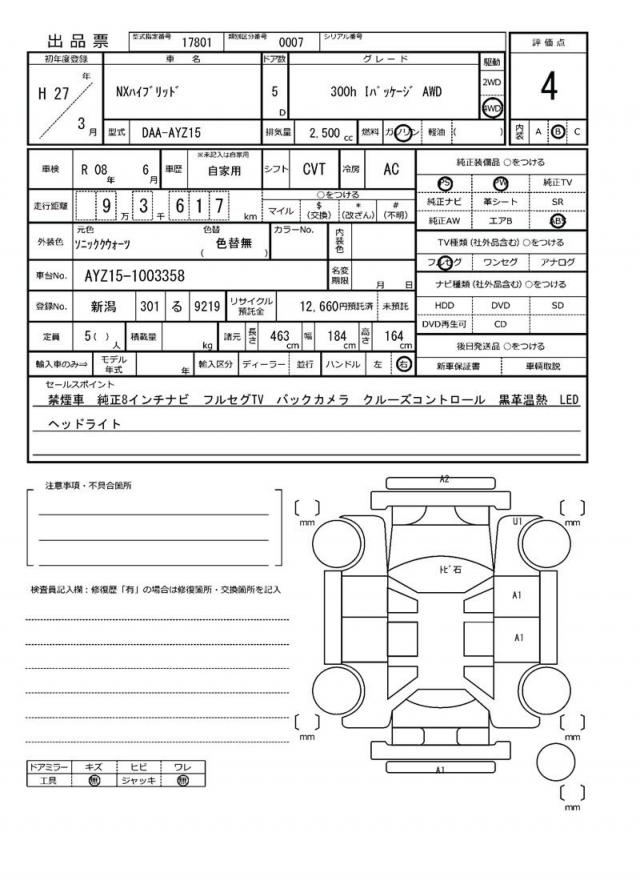 出品票 型式指定番号 17801 類別区分番号 0007 シリアル番号
初年度登録 車 名 ドア数 グレード 駆動 評価点
H 27 年 3 月 NXハイブリッド 5 D 300h Iパッケージ AWD 2WD 4WD 4
型式 DAA-AYZ15 排気量 2,500 cc 燃料 ガソリン 軽油 ( ) 内装 A B C
車検 R 08 年 6 月 車歴 ※未記入は自家用 自家用 シフト CVT 冷房 AC 純正装備品 ○をつける
PS PW 純正TV
走行距離 9 万 3 千 6 1 7 km ○をつける
マイル $ (交換) * (改ざん) # (不明)
純正ナビ 革シート SR
純正AW エアB ABS
外装色 元色 ソニッククウォーツ 色替 ( 色替無 ) カラーNo. 内装色
TV種類 (社外品含む) ○をつける
フルセグ ワンセグ アナログ
車台No. AYZ15-1003358 名変期限 月 日
ナビ種類 (社外品含む) ○をつける
登録No. 新潟 301 る 9219 リサイクル預託金 12,660円預託済 未預託
HDD DVD SD
DVD再生可 CD
定員 5 ( ) 人 積載量 kg 諸元 長さ 463 cm 幅 184 cm 高さ 164 cm
後日発送品 ○をつける
輸入車のみ⇒ モデル年式 年 輸入区分 ディーラー 並行 ハンドル 左 右 新車保証書 車輌取説
セールスポイント
禁煙車 純正8インチナビ フルセグTV バックカメラ クルーズコントロール 黒革温熱 LED
ヘッドライト
注意事項・不具合箇所
A2
mm mm
U1
トビ石
検査員記入欄：修復歴「有」の場合は修復箇所・交換箇所を記入
A1
A1
mm mm
A1
ドアミラー キズ ヒビ ワレ
工具 無 ジャッキ 無
mm